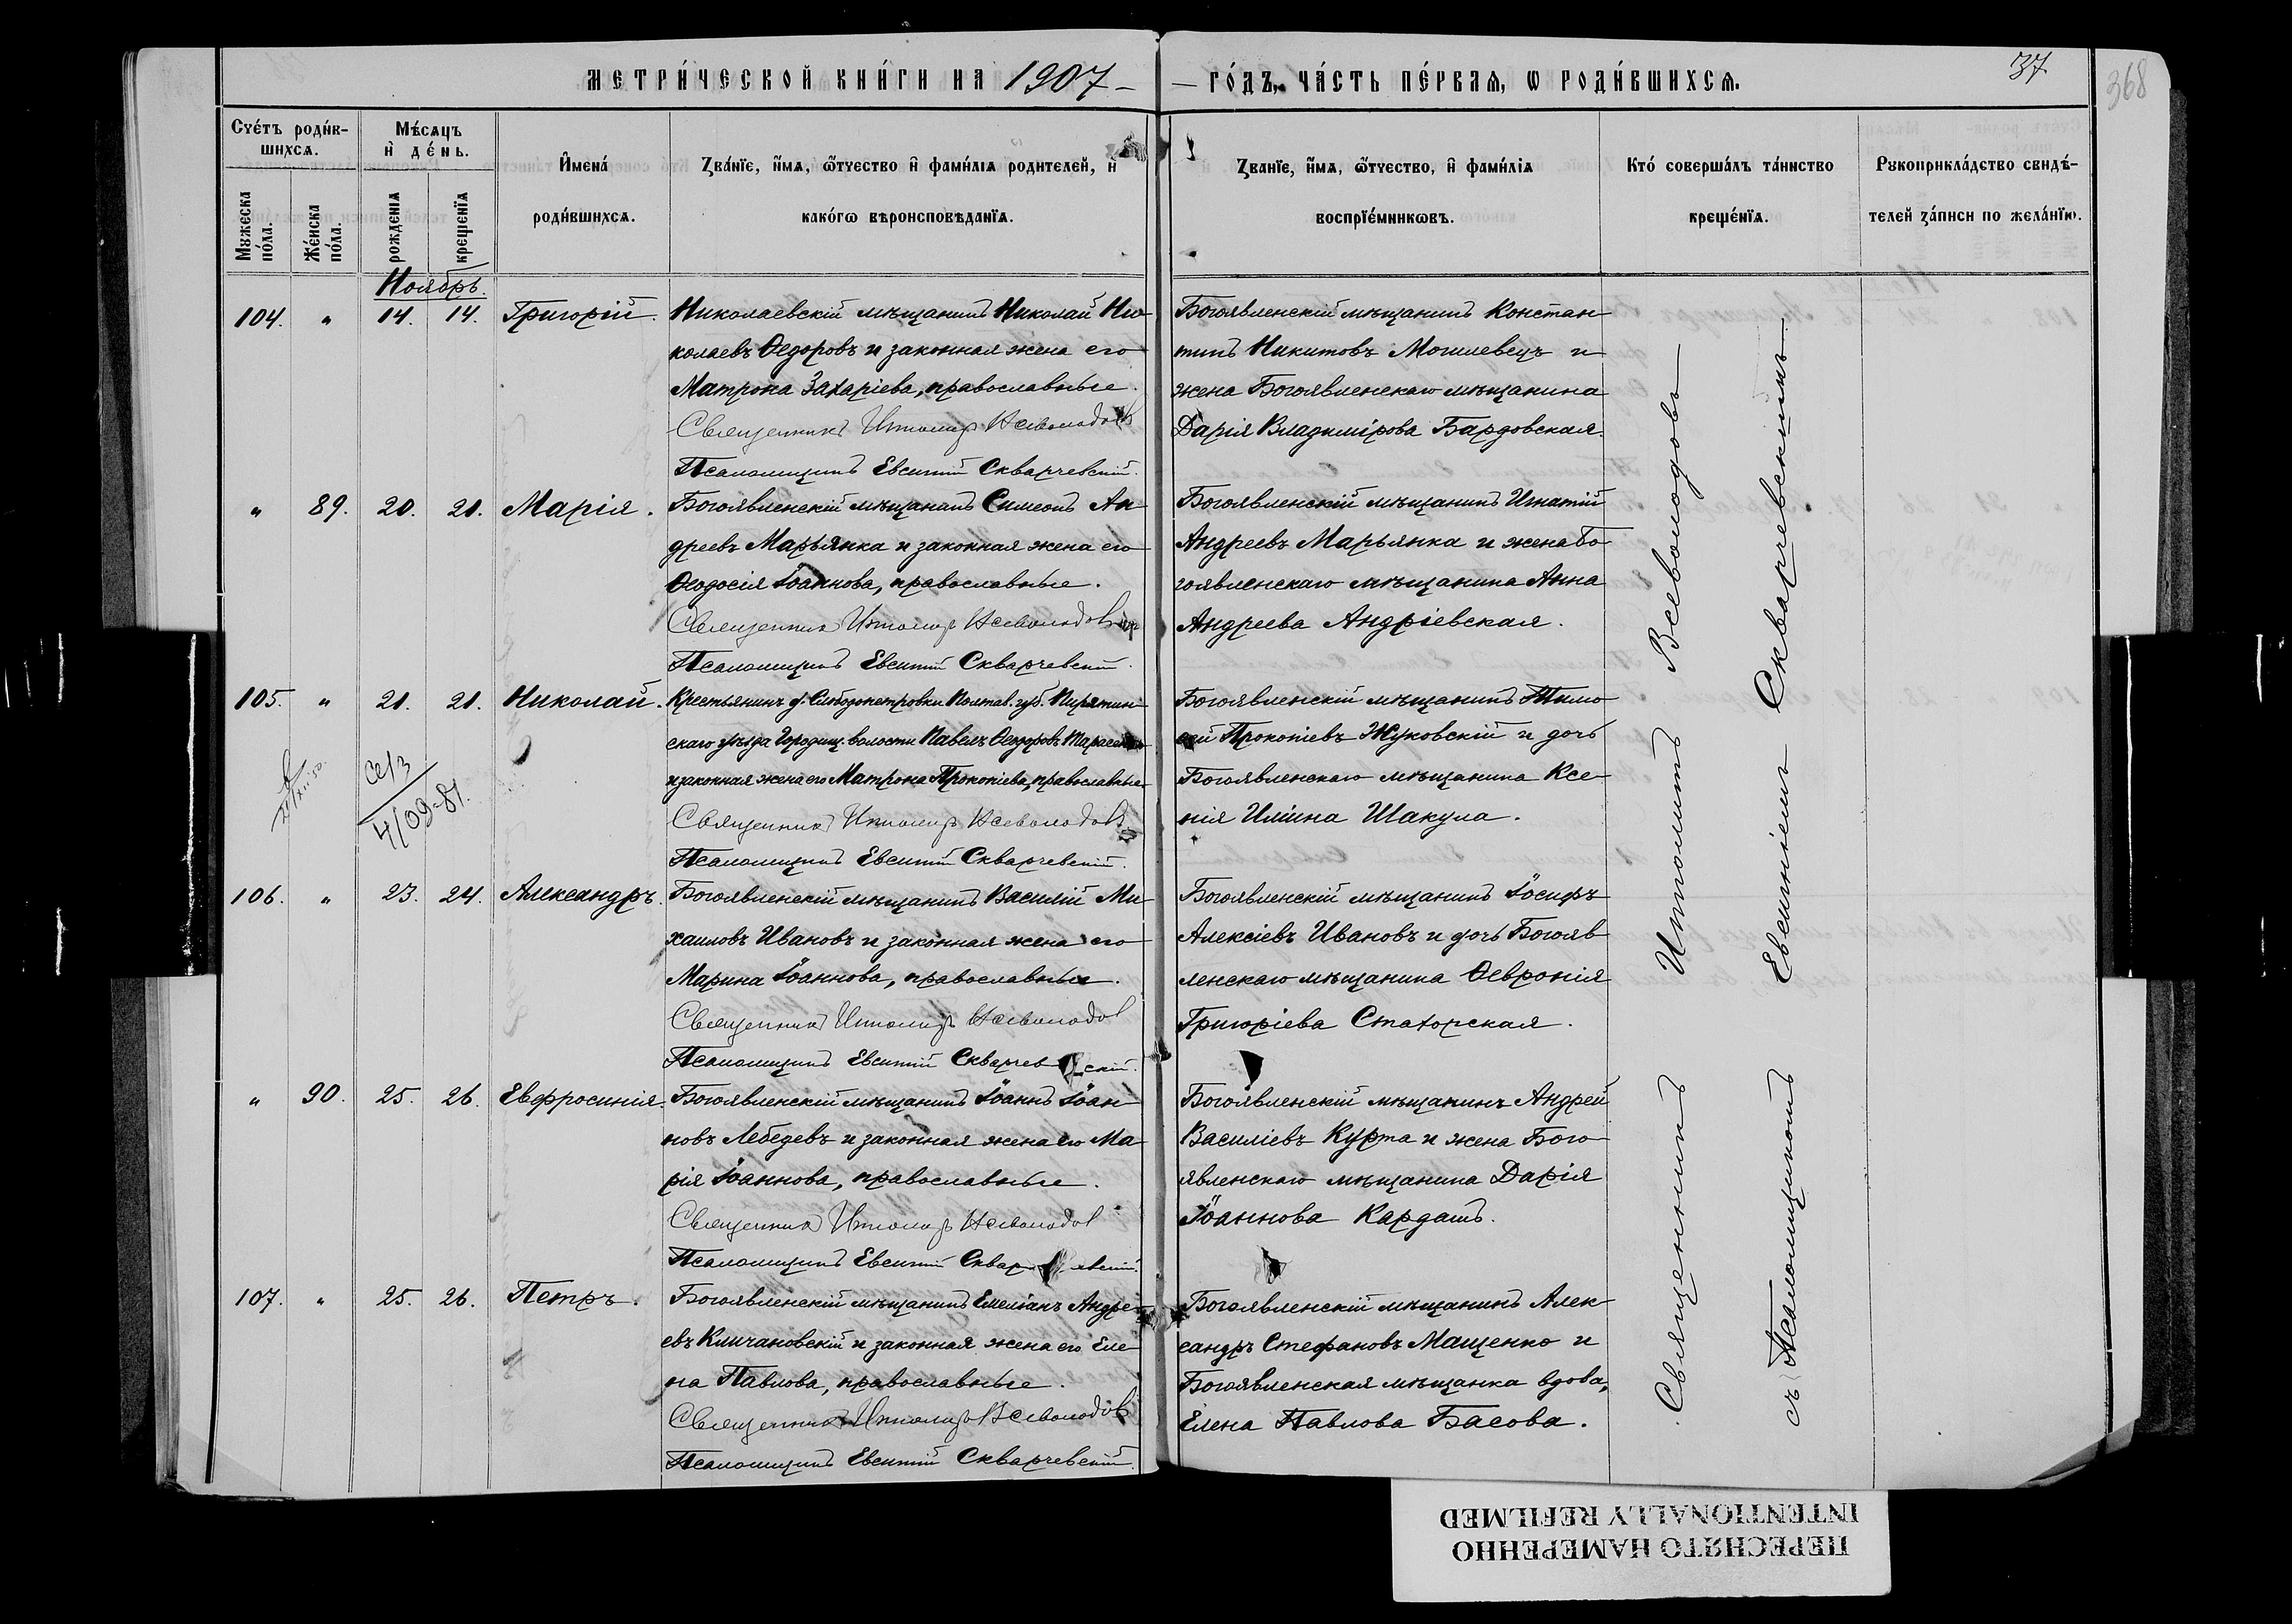 МЕТРИ́ЧЕСКОЙ КНИ́ГИ НА 1907 — ГО́ДЪ, ЧА́СТЬ ПЕ́РВАЯ, Ѡ РОДИ́ВШИХСЯ.
37
368
Счётъ роди́в-
шихсѧ.
Мужеска по́ла.
Же́нска по́ла.
Мѣ́сѧцъ
и҆ де́нь.
рожденїѧ
крещенїѧ
И҆мена́
роди́вшихсѧ.
Зва́нїе, и҆́мѧ, ѻ҆́тчество и҆ фами́лїѧ родителей, и҆
како́гѡ вѣроисповѣданїѧ.
Званїе, и҆́мѧ, ѻ҆́тчество, и҆ фами́лїѧ
воспрїе́мникѡвъ.
Кто́ соверша́лъ та́инство
креще́нїѧ.
Рукоприкла́дство свидѣ́-
телей за́писи по жела́нїю.
Ноябрь.
104. " 14. 14. Григорій.
Николаевскій мѣщанинъ Николай Ни-
колаевъ Ѳедоровъ и законная жена его
Матрона Захаріева, православные.
Священникъ Ипполитъ Всеволодовъ
Псаломщикъ Евсигній Скварчевскій.
Богоявленскій мѣщанинъ Констан-
тинъ Никитовъ Могилевецъ и
жена Богоявленскаго мѣщанина
Дарія Владимірова Бардовская.
" 89. 20. 21. Марія.
Богоявленскій мѣщанинъ Симеонъ Ан-
дреевъ Марьянка и законная жена его
Ѳеодосія Іоаннова, православные.
Священникъ Ипполитъ Всеволодовъ
Псаломщикъ Евсигній Скварчевскій.
Богоявленскій мѣщанинъ Игнатій
Андреевъ Марьянка и жена Бо-
гоявленскаго мѣщанина Анна
Андреева Андріевская.
105. " 21. 21. Николай.
Крестьянинъ д. Слободопетровки Полтав. губ. Пирятин-
скаго уѣзда Городищ. волости Павелъ Ѳеодоровъ
и законная жена его Матрона Прокопіева, православные
Священникъ Ипполитъ Всеволодовъ
Псаломщикъ Евсигній Скварчевскій.
Богоявленскій мѣщанинъ Тимо-
ѳей Прокопіевъ Жуковскій и дочь
Богоявленскаго мѣщанина Ксе-
нія Иліина Шакула.
4/09-81.
106. " 23. 24. Александръ.
Богоявленскій мѣщанинъ Василій Ми-
хаиловъ Ивановъ и законная жена его
Марина Іоаннова, православные.
Священникъ Ипполитъ Всеволодов
Псаломщикъ Евсигній Скварчевскій.
Богоявленскій мѣщанинъ Іосифъ
Алексіевъ Ивановъ и дочь Богояв-
ленскаго мѣщанина Ѳевронія
Григоріева Стахорская.
" 90. 25. 26. Евфросинія.
Богоявленскій мѣщанинъ Іоаннъ Іоан-
новъ Лебедевъ и законная жена его Ма-
рія Іоаннова, православные.
Священникъ Ипполитъ Всеволодов
Псаломщикъ Евсигній Скварчевскій.
Богоявленскій мѣщанинъ Андрей
Василіевъ Курта и жена Бого-
явленскаго мѣщанина Дарія
Іоаннова Кардашъ.
107. " 25. 26. Петръ.
Богоявленскій мѣщанинъ Емеліанъ Андре-
евъ Кличановскій и законная жена его Еле-
на Павлова, православные.
Священникъ Ипполитъ Всеволодов
Псаломщикъ Евсигній Скварчевскій.
Богоявленскій мѣщанинъ Алек-
сандръ Стефановъ Мащенко и
Богоявленская мѣщанка вдова,
Елена Павлова Басова.
Священникъ Ипполитъ Всеволодовъ
съ Псаломщикомъ Евсигніемъ Скварчевскимъ
ПЕРЕСНЯТО НАМЕРЕННО
INTENTIONALLY REFILMED